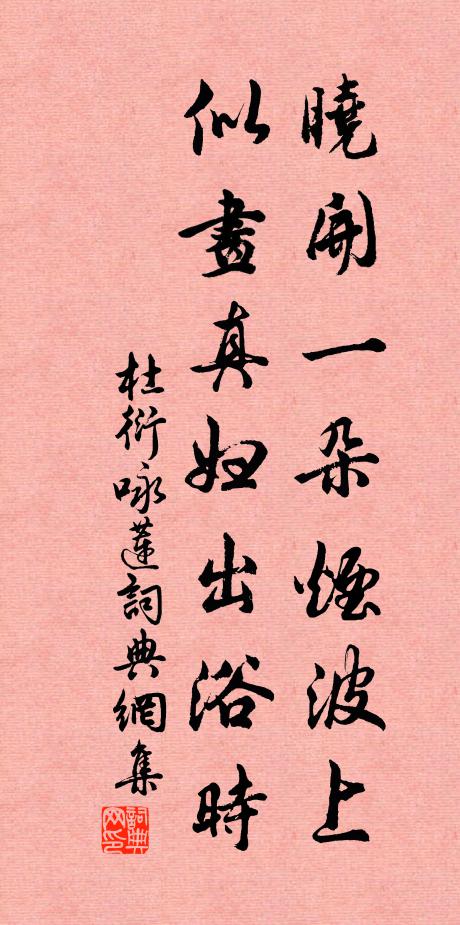 曉開一朵煙波上
似畫真妃出浴時
杜衍咏蓮詞典網集
詞典
网印